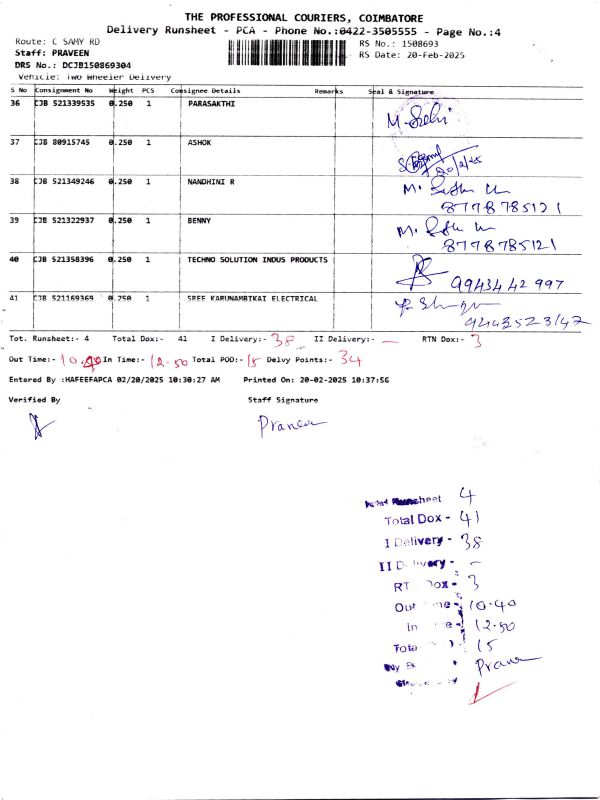 THE PROFESSIONAL COURIERS, COIMBATORE
Delivery Runsheet - PCA - Phone No.:0422-3505555 - Page No.:4
Route: C SAMY RD
RS No.: 1508693
Staff: PRAVEEN
RS Date: 20-Feb-2025
DRS No.: DCJB150869304
Vehicle: Two Wheeler Delivery
S No Consignment No Weight PCS Consignee Details Remarks Seal & Signature
36 CJB 521339535 0.250 1 PARASAKTHI
37 CJB 80915745 0.250 1 ASHOK
20/2/25
38 CJB 521349246 0.250 1 NANDHINI R M.
8778785121
39 CJB 521322937 0.250 1 BENNY M.
8778785121
40 CJB 521358396 0.250 1 TECHNO SOLUTION INDUS PRODUCTS
9943442997
41 CJB 521169369 0.250 1 SREE KARUNAMBIKAI ELECTRICAL
9443523147
Tot. Runsheet:- 4 Total Dox:- 41 I Delivery:- 38 II Delivery:- — RTN Dox:- 3
Out Time:- 10.40 In Time:- 12-50 Total POD:- 15 Delvy Points:- 34
Entered By :HAFEEFAPCA 02/20/2025 10:30:27 AM Printed On: 20-02-2025 10:37:56
Verified By Staff Signature
Runsheet 4
Total Dox - 41
I Delivery - 38
II Delivery - —
RT Dox - 3
Out 10-40
In 12-50
Tota 15